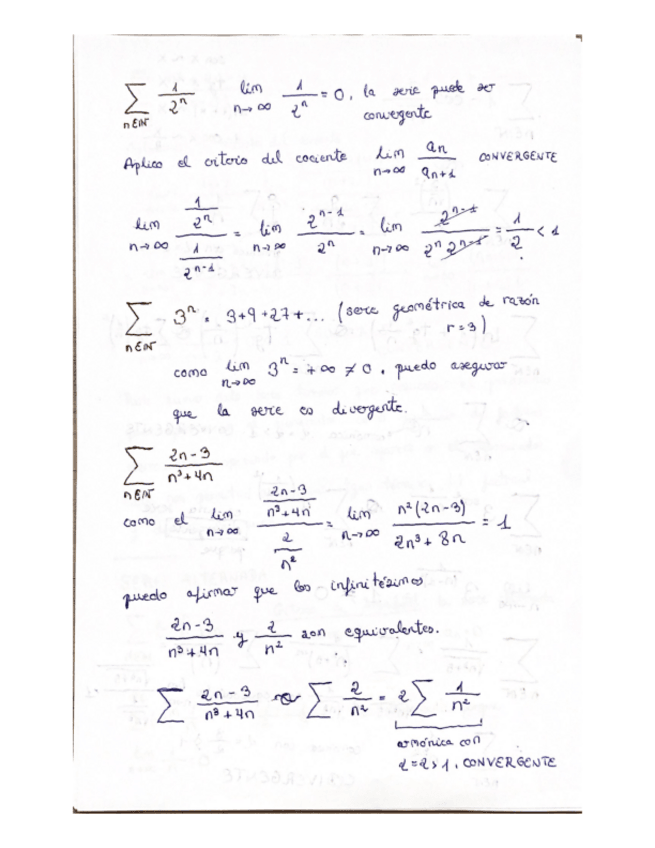 ∑_{n∈ℕ} 1/2ⁿ lim_{n→∞} 1/2ⁿ = 0, la serie puede ser
convergente
Aplico el criterio del cociente lim_{n→∞} an/an+1 CONVERGENTE
lim_{n→∞} (1/2ⁿ)/(1/2ⁿ⁻¹) = lim_{n→∞} 2ⁿ⁻¹/2ⁿ = lim_{n→∞} 2ⁿ⁻¹/(2ⁿ 2ⁿ⁻¹) = 1/2 < 1
∑_{n∈ℕ} 3ⁿ = 3+9+27+... (serie geométrica de razón
r=3)
como lim_{n→∞} 3ⁿ = +∞ ≠ 0, puedo asegurar
que la serie es divergente.
∑_{n∈ℕ} (2n-3)/(n³+4n)
como el lim_{n→∞} ((2n-3)/(n³+4n))/(2/n²) = lim_{n→∞} n²(2n-3)/(2n³+8n) = 1
puedo afirmar que los infinitésimos
(2n-3)/(n³+4n) y 2/n² son equivalentes.
∑ (2n-3)/(n³+4n) ∼ ∑ 2/n² = 2∑ 1/n²
armónica con
2=2>1, CONVERGENTE